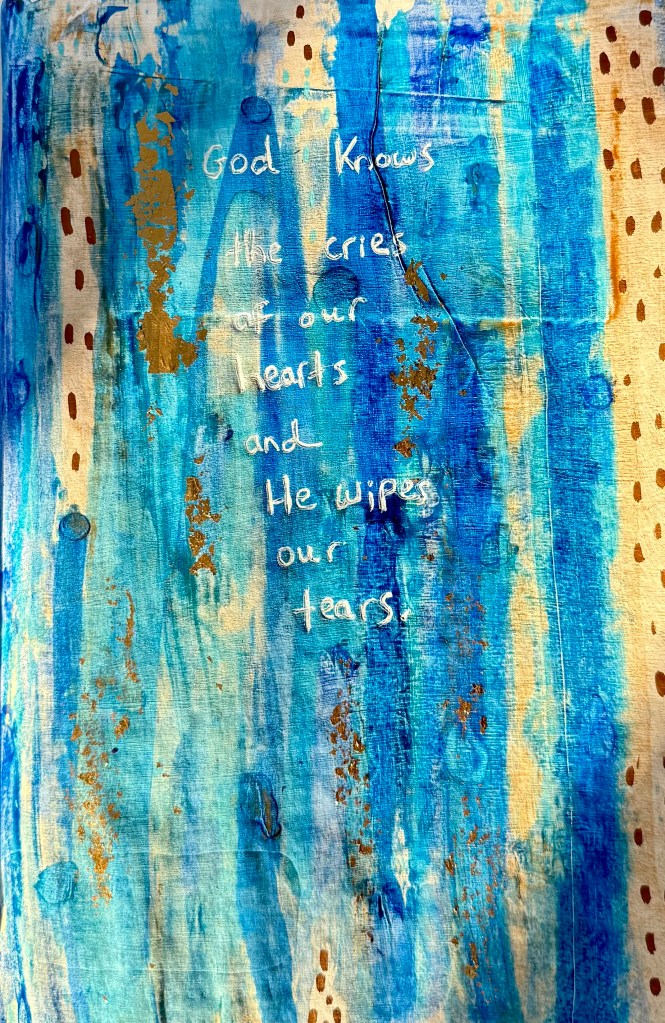 God Knows
the cries
of our
hearts
and
He wipes
our
tears.